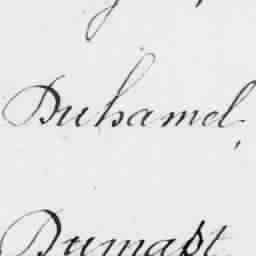 Duhamel,
Dumast